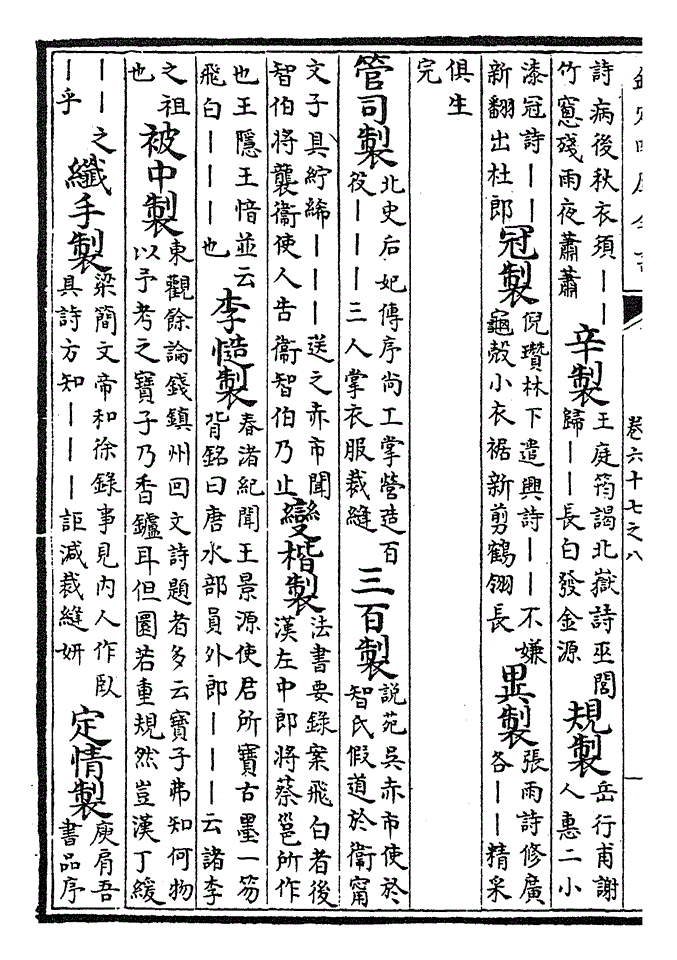 卷六十七之八
詩病後秋衣須——竹窻殘雨夜蕭蕭 辛製 王庭筠謁北嶽詩巫閭歸——長白發金源 規製 岳行甫謝人惠二小
漆冠詩——新翻出杜郎 冠製 倪瓚林下遣興詩——不嫌龜殼小衣裾新剪鶴翎長 異製 張雨詩修廣各——精采
俱生完
管司製 北史后妃傳序尚工掌營造百役———三人掌衣服裁縫 三百製 說苑吳赤市使於智氏假道於衞甯
文子具紵絺———送之赤市聞智伯將襲衞使人告衞智伯乃止 變楷製 法書要錄案飛白者後漢左中郎將蔡邕所作
也王隱王愔並云飛白———也 李慥製 春渚紀聞王景源使君所寶古墨一笏背銘曰唐水部員外郎———云諸李
之祖也 被中製 東觀餘論錢鎮州回文詩題者多云寶子弗知何物以予考之寶子乃香鑪耳但圜若重規然豈漢丁緩
——之—乎 纖手製 梁簡文帝和徐錄事見內人作臥具詩方知———詎減裁縫妍 定情製 庾肩吾書品序